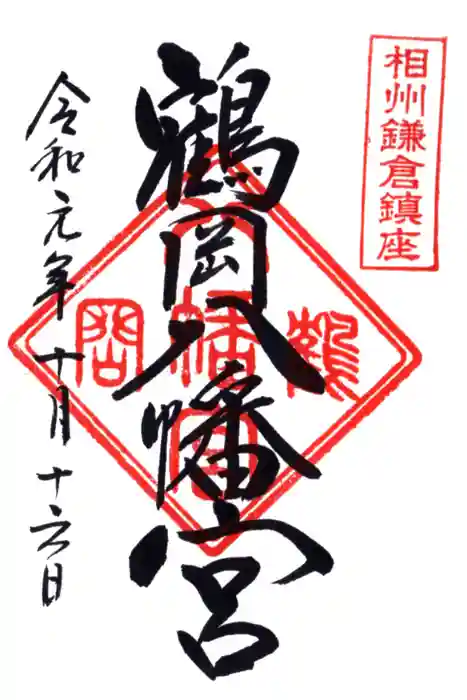 相州鎌倉鎮座
鶴岡八幡宮
鶴 八幡宮 岡
令和元年十月十六日